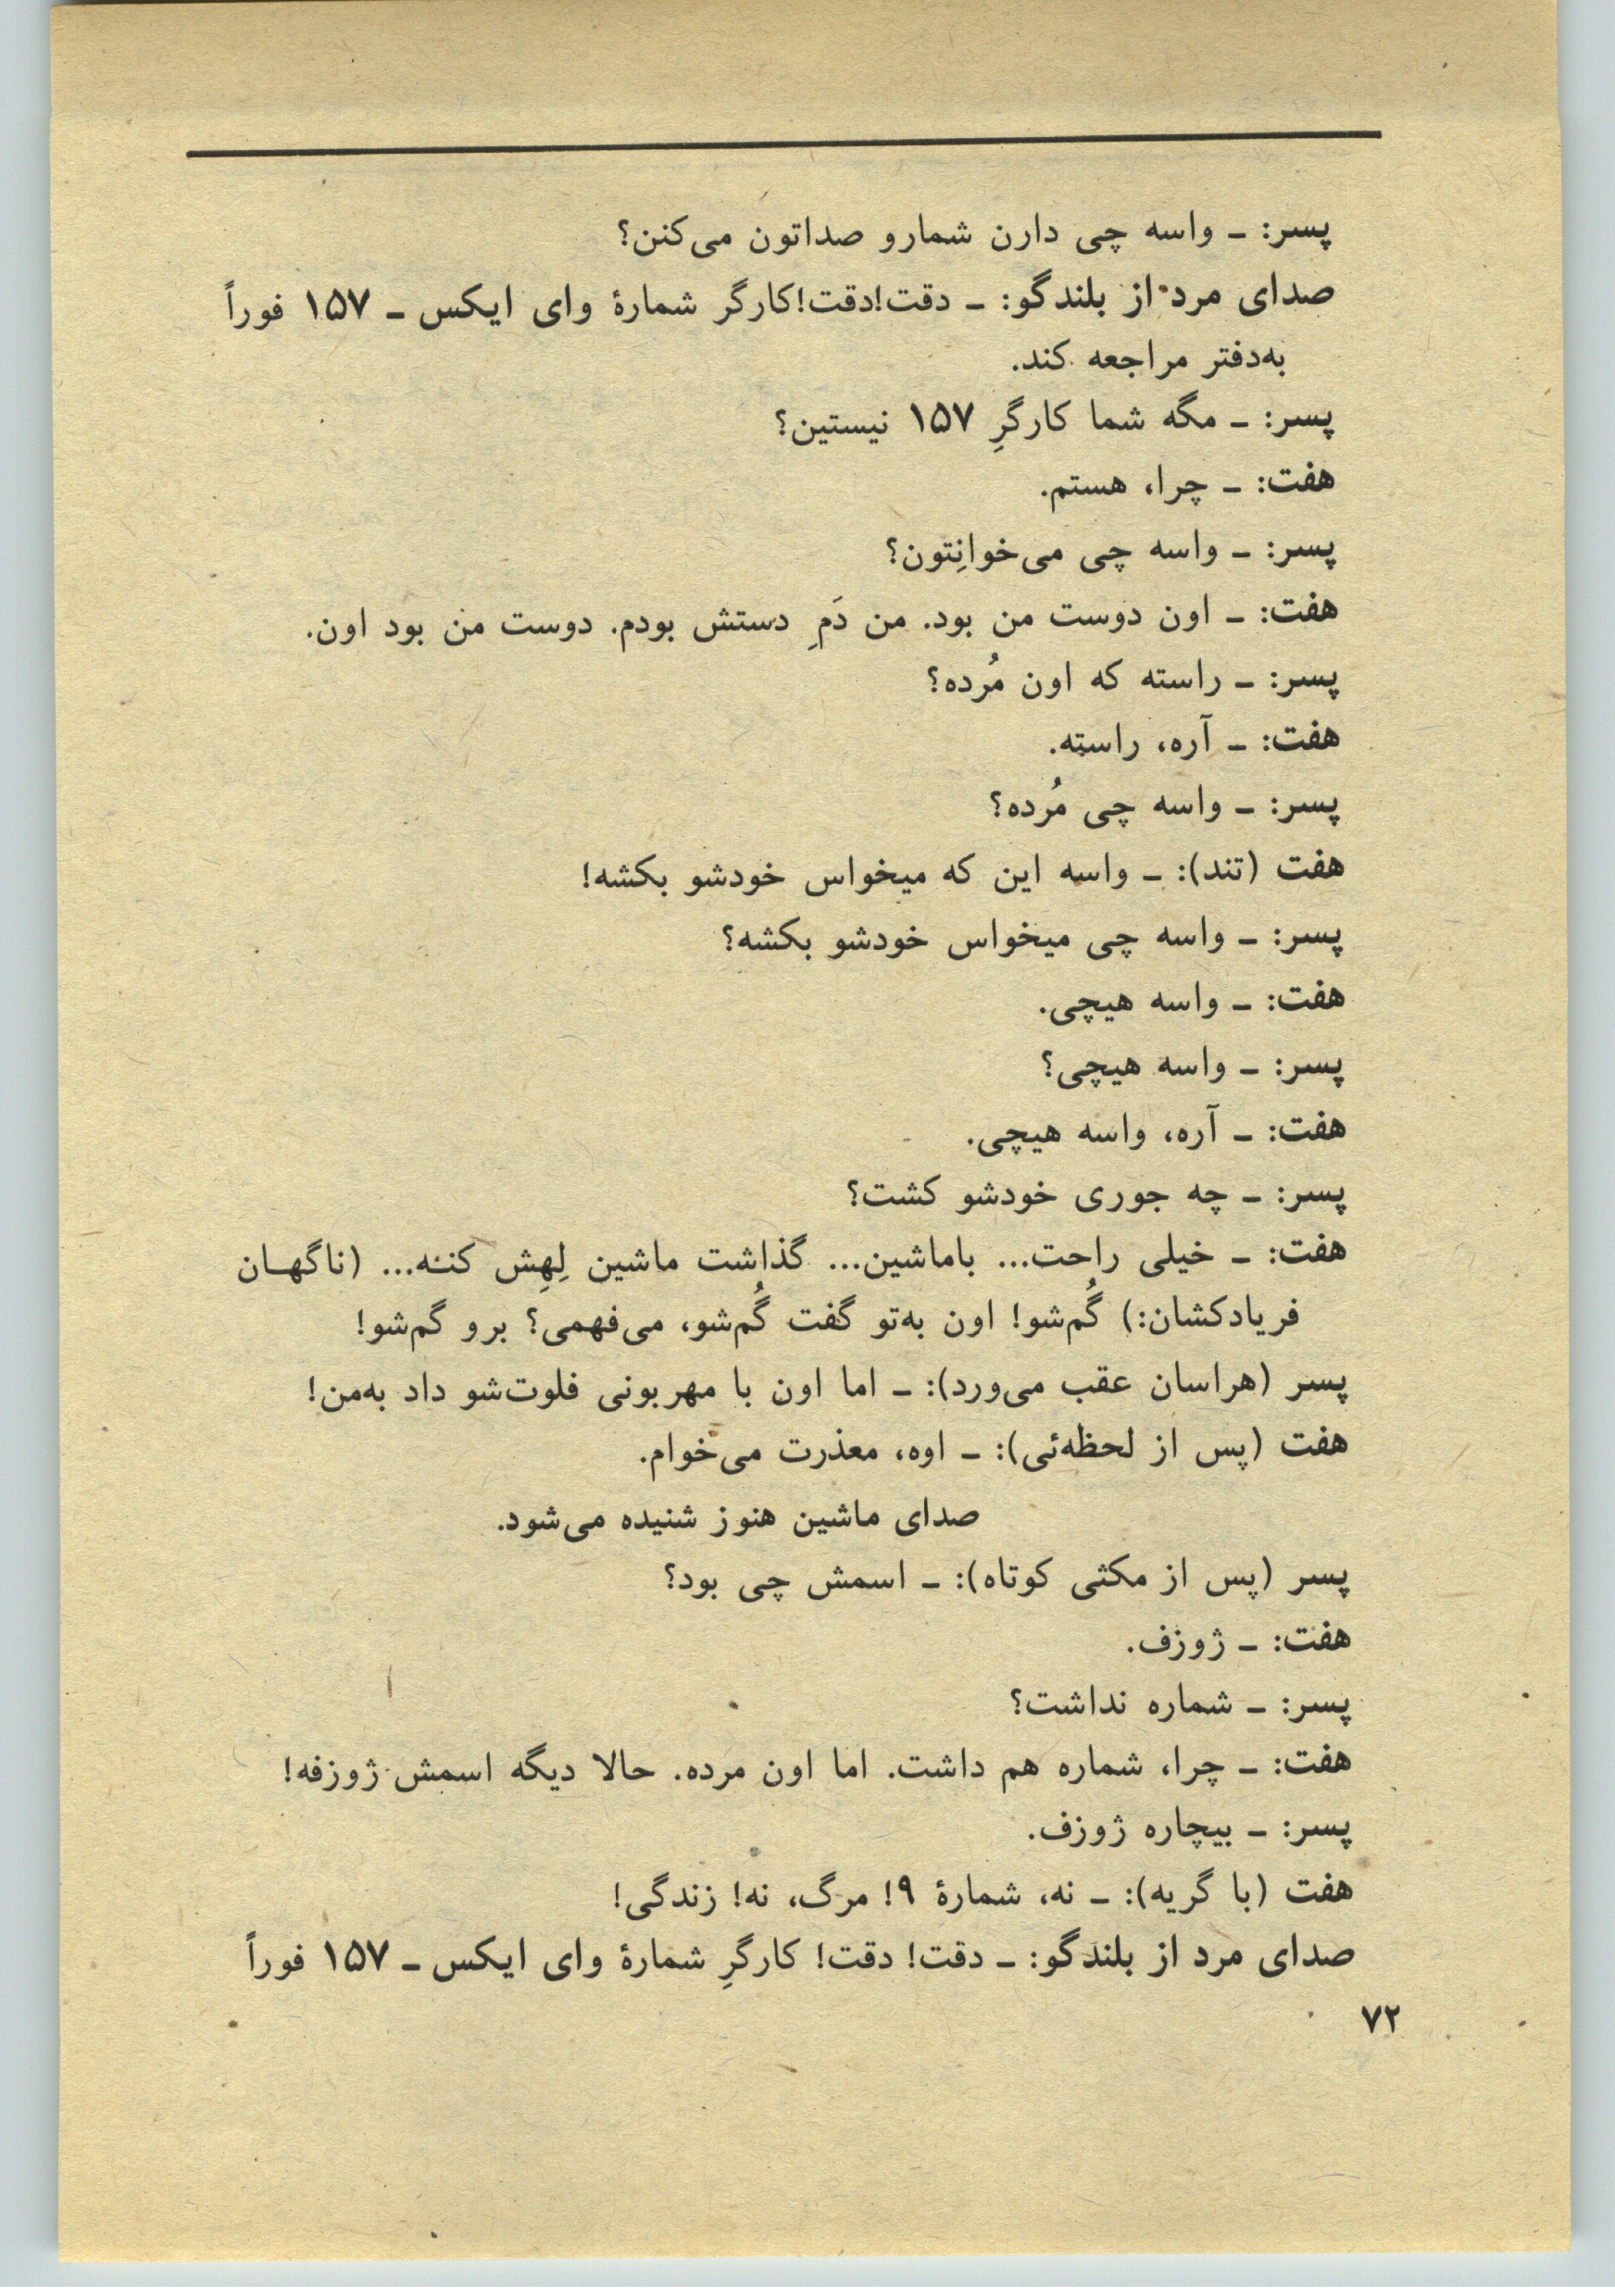 پسر: ـ واسه چی دارن شمارو صداتون می‌کنن؟
صدای مرد از بلندگو: ـ دقت!دقت!کارگر شمارهٔ وای ایکس ـ ۱۵۷ فوراً
به‌دفتر مراجعه کند.
پسر: ـ مگه شما کارگرِ ۱۵۷ نیستین؟
هفت: ـ چرا، هستم.
پسر: ـ واسه چی می‌خوانِتون؟
هفت: ـ اون دوست من بود. من دَمِ دستش بودم. دوست من بود اون.
پسر: ـ راسته که اون مُرده؟
هفت: ـ آره، راسته.
پسر: ـ واسه چی مُرده؟
هفت (تند): ـ واسه این که میخواس خودشو بکشه!
پسر: ـ واسه چی میخواس خودشو بکشه؟
هفت: ـ واسه هیچی.
پسر: ـ واسه هیچی؟
هفت: ـ آره، واسه هیچی.
پسر: ـ چه جوری خودشو کشت؟
هفت: ـ خیلی راحت... باماشین... گذاشت ماشین لِهِش کننه... (ناگهـان
فریادکشان:) گُم‌شو! اون به‌تو گفت گُم‌شو، می‌فهمی؟ برو گم‌شو!
پسر (هراسان عقب می‌ورد): ـ اما اون با مهربونی فلوت‌شو داد به‌من!
هفت (پس از لحظه‌ئی): ـ اوه، معذرت می‌خوام.
صدای ماشین هنوز شنیده می‌شود.
پسر (پس از مکثی کوتاه): ـ اسمش چی بود؟
هفت: ـ ژوزف.
پسر: ـ شماره نداشت؟
هفت: ـ چرا، شماره هم داشت. اما اون مرده. حالا دیگه اسمش ژوزفه!
پسر: ـ بیچاره ژوزف.
هفت (با گریه): ـ نه، شمارهٔ ۹! مرگ، نه! زندگی!
صدای مرد از بلندگو: ـ دقت! دقت! کارگرِ شمارهٔ وای ایکس ـ ۱۵۷ فوراً
۷۲